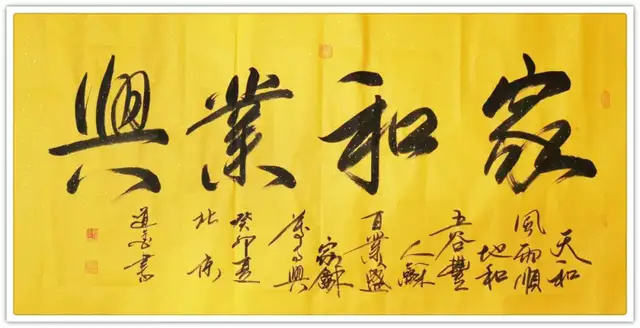 家和業興
天和
風雨順
地和
五谷豐
人龢
百業盛
家龢
萬事興
癸卯夏
北京
道書